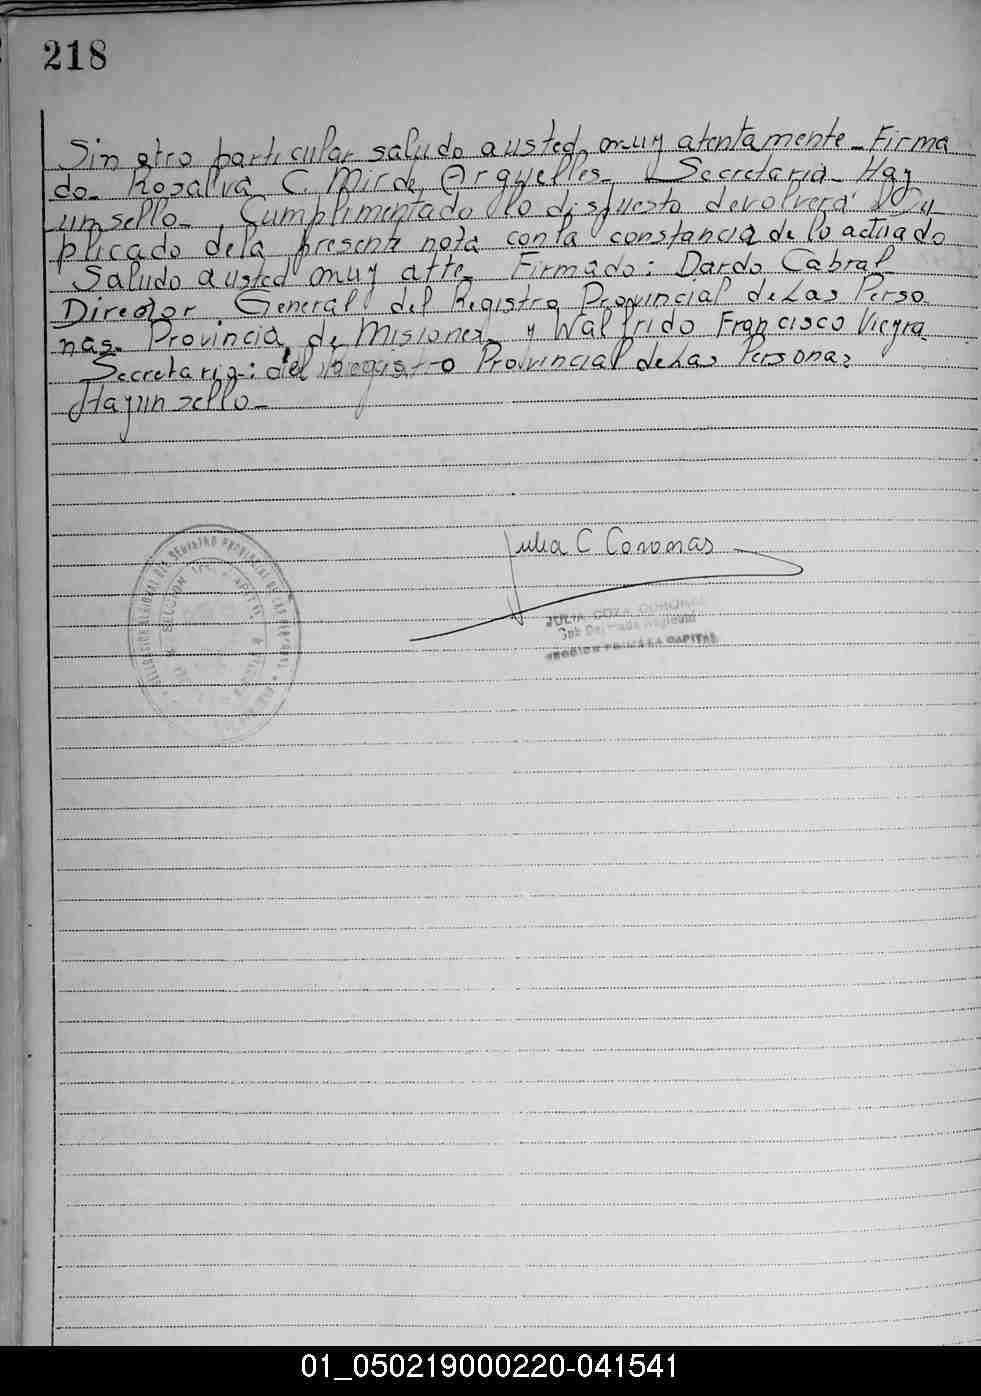 218
Sin otro particular saludo a usted muy atentamente - Firma
do - Rosalva C. Mir de Arguelles - Secretaria - Hay
un sello - Cumplimentado lo dispuesto devolverá Du
plicado de la presente nota con la constancia de lo actuado
Saludo a usted muy atte - Firmado: Dardo Cabral
Director General del Registro Provincial de Las Perso
nas - Provincia de Misiones y Walfrido Francisco Vieyra
Secretaria: del Registro Provincial de Las Personas
Hay un sello -
Julia C Coronas
JULIA COZA CORONAS
Sub Delegada Regional
REGION PRIMERA CAPITAL
01_050219000220-041541